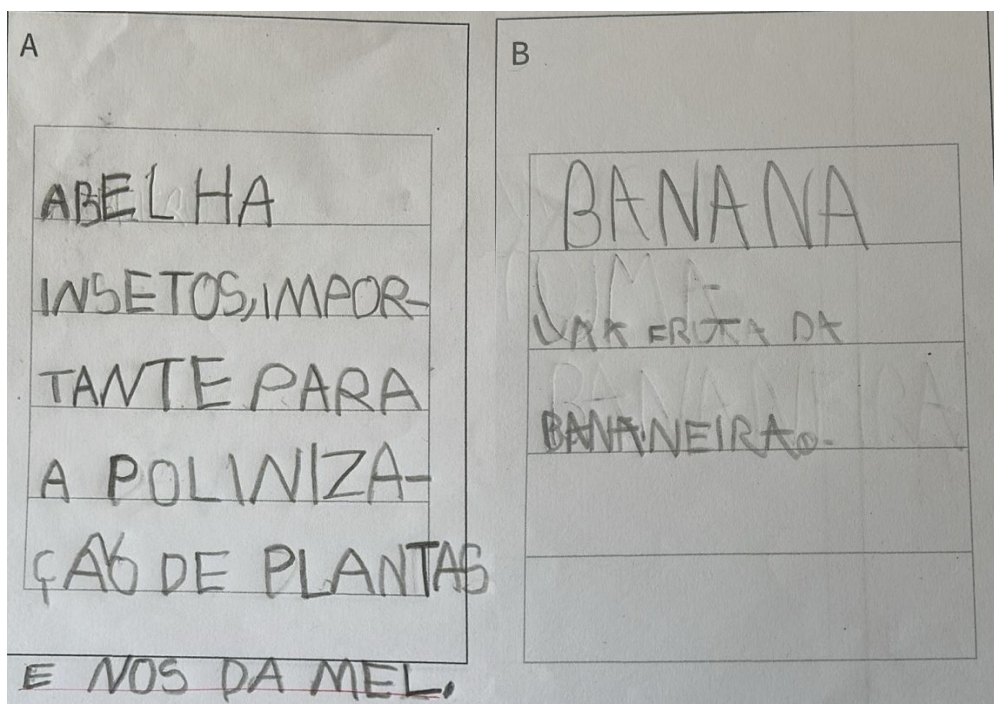 A
ABELHA
INSETOS, IMPOR-
TANTE PARA
A POLINIZA-
ÇÃO DE PLANTAS
E NOS DA MEL.
B
BANANA
FRUTA DA
BANANEIRA.